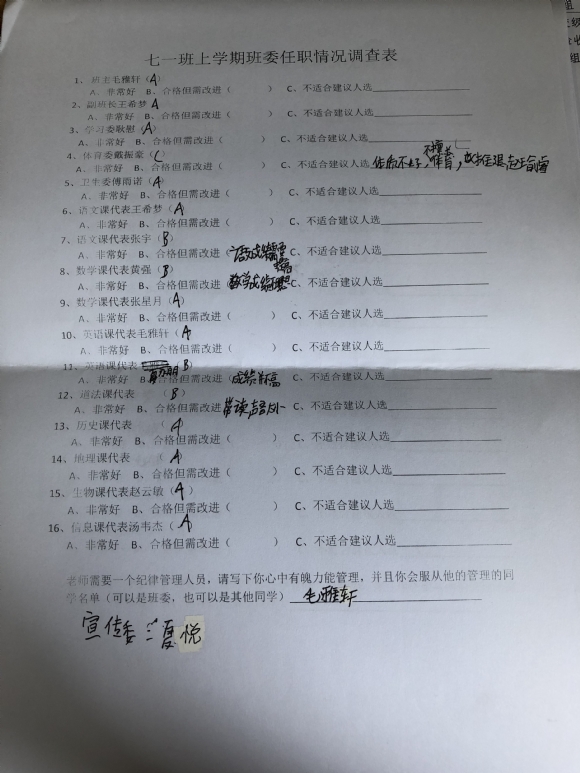 七一班上学期班委任职情况调查表
1、班主毛雅轩（A）
A、非常好 B、合格但需改进（ ） C、不适合建议人选
2、副班长王希梦 A
A、非常好 B、合格但需改进（ ） C、不适合建议人选
3、学习委耿慰（A）
A、非常好 B、合格但需改进（ ） C、不适合建议人选
4、体育委戴振豪（C）
A、非常好 B、合格但需改进（ ） C、不适合建议人选 体质不好，不懂体育，
5、卫生委傅雨诺（A）
A、非常好 B、合格但需改进（ ） C、不适合建议人选
6、语文课代表王希梦（A）
A、非常好 B、合格但需改进（ ） C、不适合建议人选
7、语文课代表张宇（B）
A、非常好 B、合格但需改进（语文成绩需要提高 C、不适合建议人选
8、数学课代表黄强（B）
A、非常好 B、合格但需改进 数学成绩 C、不适合建议人选
9、数学课代表张星月（A）
A、非常好 B、合格但需改进（ ） C、不适合建议人选
10、英语课代表毛雅轩（A
A、非常好 B、合格但需改进（ ） C、不适合建议人选
11、英语课代表 B）
A、非常好 B、合格但需改进 成绩不高 C、不适合建议人选
12、道法课代表 （B）
A、非常好 B、合格但需改进 带读声音小 C、不适合建议人选
13、历史课代表 （A）
A、非常好 B、合格但需改进（ ） C、不适合建议人选
14、地理课代表 A）
A、非常好 B、合格但需改进（ ） C、不适合建议人选
15、生物课代表赵云敏（A）
A、非常好 B、合格但需改进（ ） C、不适合建议人选
16、信息课代表汤韦杰（A）
A、非常好 B、合格但需改进（ ） C、不适合建议人选
老师需要一个纪律管理人员，请写下你心中有魄力能管理，并且你会服从他的管理的同
学名单（可以是班委，也可以是其他同学） 毛雅轩
宣传委 兰夏悦